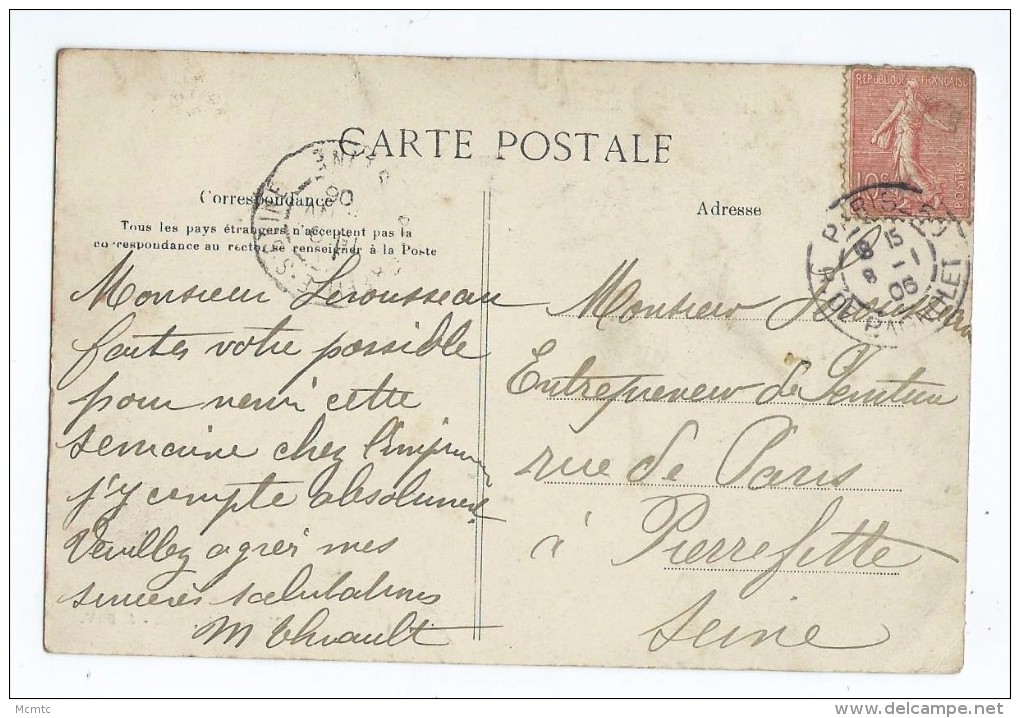 CARTE POSTALE
Correspondance
Tous les pays étrangers n'acceptent pas la
correspondance au recto, se renseigner à la Poste
Monsieur Lerousseau
faites votre possible
pour venir cette
semaine chez
j'y compte absolument
Veuillez agréer mes
sincères salutations
M Thirault
Adresse
Monsieur
Entrepreneur de Peinture
rue de Paris
à Pierrefitte
Seine
REPUBLIQUE FRANÇAISE
10c
POSTES
PARIS
15
1
06
Mcmtc
delcampe.net